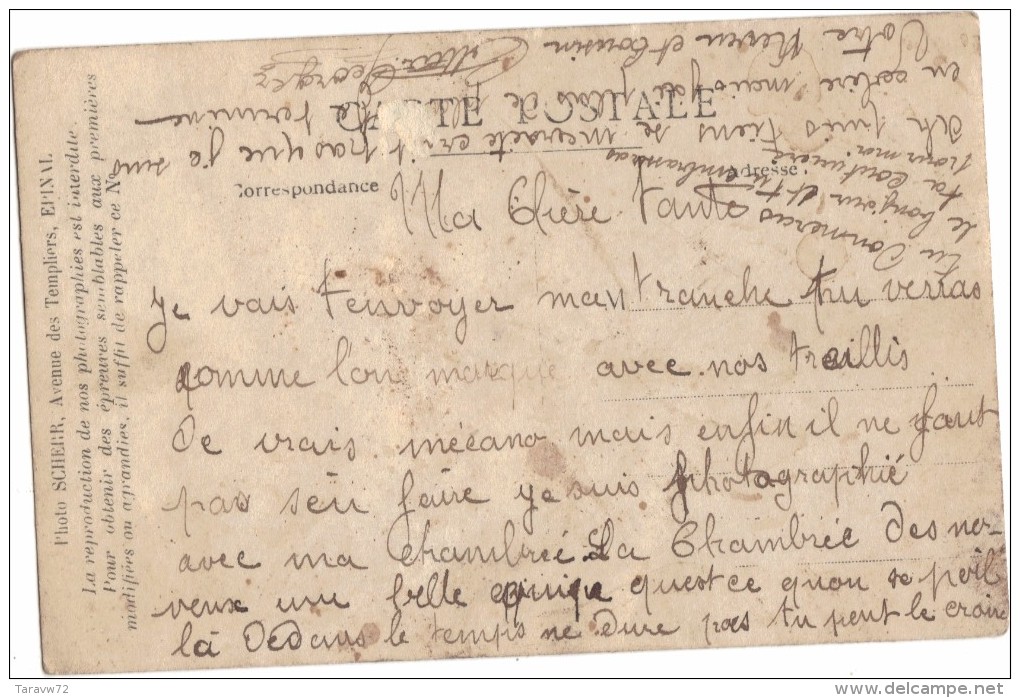 CARTE POSTALE
Correspondance
Adresse.
Ma Chère Tante
Je vais t'envoyer man tranche tu verras
comme l'on marque avec nos treillis
De vrais mécano mais enfin il ne faut
pas s'en faire je suis photographié
avec ma chambrée La Chambrée des ner-
veux une belle équipe quest ce quon se poil
là Dedans le temps ne dure pas tu peut le croire
Tu Donneras
le bonjour et
ta
pour moi
embrasses
Ah mais tiens se
pas que je suis
en colère mais plus de
la termine
Votre Neveu et Cousin
Georges
Photo SCHERR, Avenue des Templiers, EPINAL
La reproduction de nos photographies est interdite.
Pour obtenir des épreuves semblables aux premières
modifiées ou agrandies, il suffit de rappeler ce No
Taravw72
delcampe.net